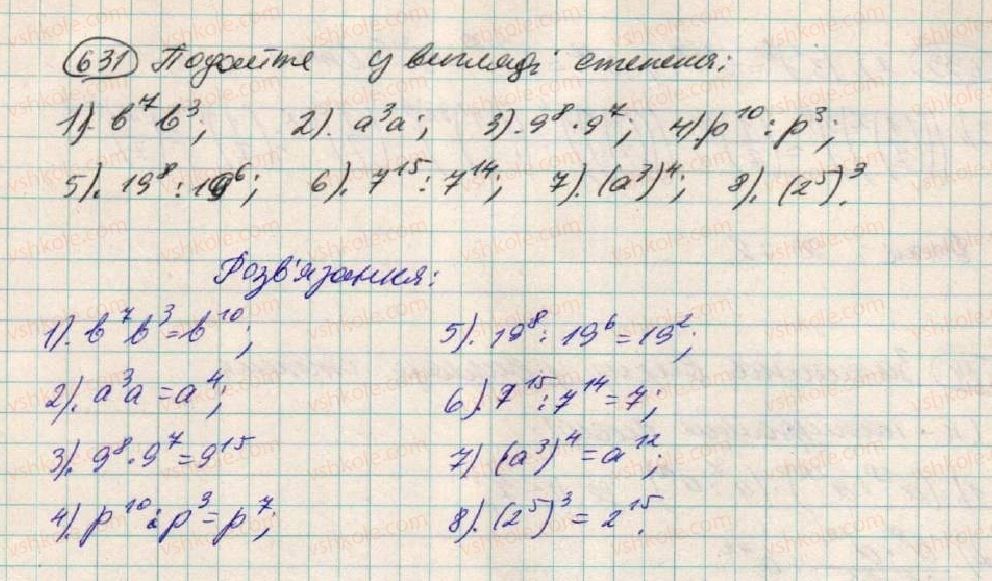 631 Подайте у вигляді степеня:
1). b⁷b³; 2). a³a; 3). 9⁸·9⁷; 4) p¹⁰:p³;
5). 19⁸:19⁶; 6). 7¹⁵:7¹⁴; 7). (a³)⁴; 8). (2⁵)³.
Розв'язання:
1). b⁷b³=b¹⁰;
2). a³a=a⁴;
3). 9⁸·9⁷=9¹⁵
4). p¹⁰:p³=p⁷;
5). 19⁸:19⁶=19²;
6). 7¹⁵:7¹⁴=7;
7) (a³)⁴=a¹²;
8). (2⁵)³=2¹⁵.
vshkole.com